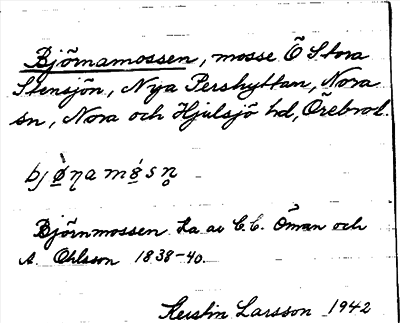 Björnamossen, mosse Ö Stora
Stensjön, Nya Pershyttan, Nora
sn, Nora och Hjulsjö hd, Örebro l.
bjø̀ɳamǿsn̥
Björnmossen Ka av C.C. Öman och
A. Ohlsson 1838-40.
Kerstin Larsson 1942